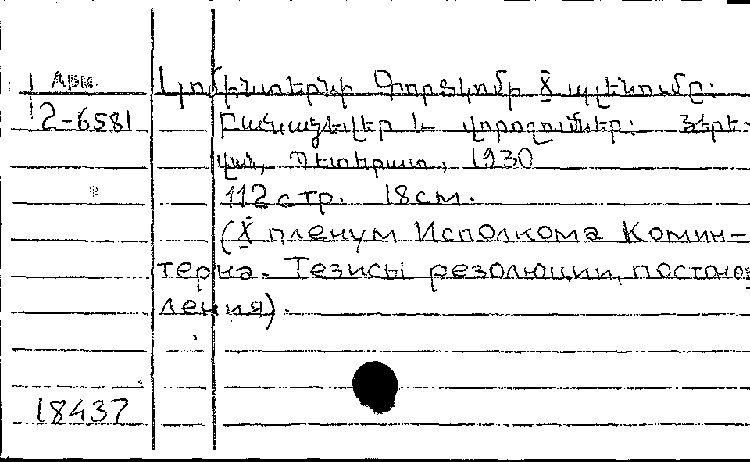 Арм. Կոմինտերնի Գործկոմի X պլենումը:
2-6581 Բանաձևեր և վորոշումներ: Յերե-
վան, Պետհրատ, 1930
112 стр. 18 см.
(X пленум Исполкома Комин-
терна. Тезисы резолюции, постанов
ления).
18437